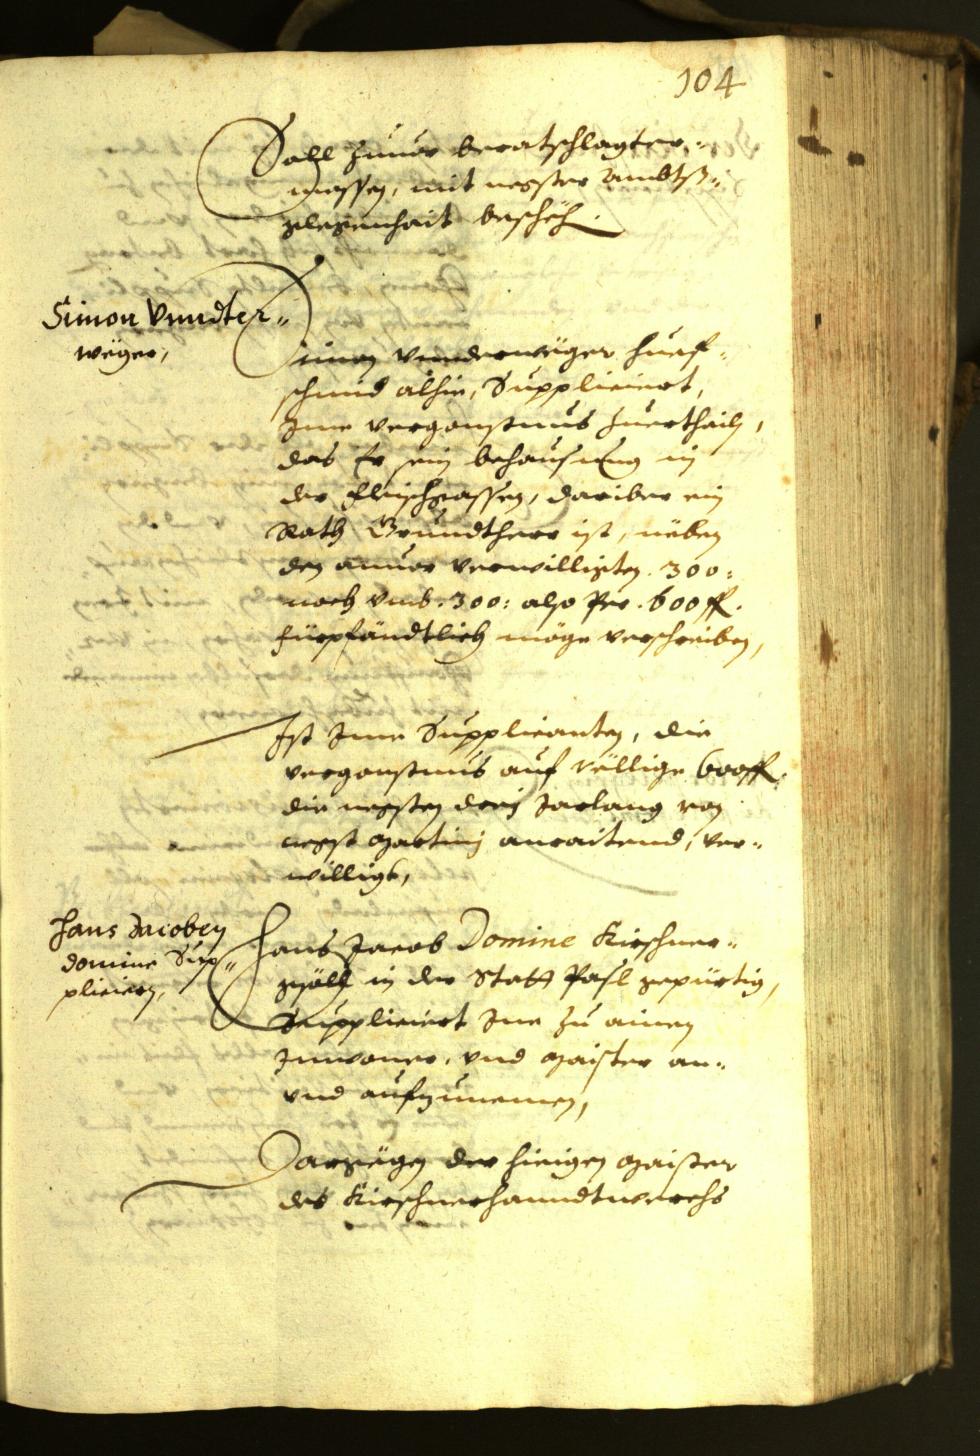 104
Soll zuuor beratschlagter¬
massen, mit negster Ambtß¬
gelegenhait beschech.
Simon Vnndter¬
weger,
Simon Vnnderweger Huef¬
schmid alhie, Supplicirt,
Ime vergonstnus zuerthailn,
das Er sein behausung in
der Fleischgassen, dariber ein
Rath Grundtherr ist, neben
den anuor verwilligten .300:
noch vmb .300: also Per .600 fl.
fürpfändtlich möge verschreiben,
Ist Ime Supplicanten, die
vergonstnus auf völlige 600 fl.
die negsten drey Jarlang von
negst Martinj anraitend, ver¬
willigt,
Hans Jacoben
Domine Sup¬
pliciern,
Hans Jacob Domine Kirschner¬
gsöll in der Statt Pasl gepürtig,
Supplicirt Ine zu ainen
Inwoner, vnd Maister an¬
vnd aufzunemen,
Dargegen der hieigen Maister
des Kirschnerhanndtwerchs